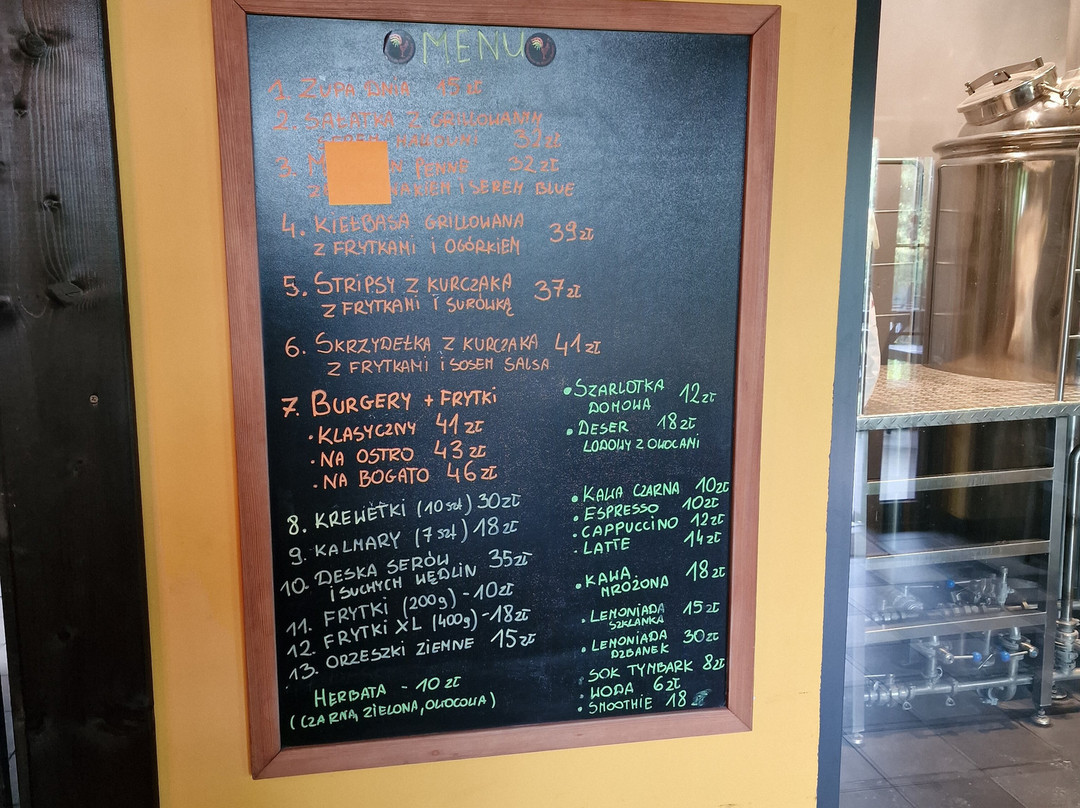 MENU
1. ZUPA DNIA 15 zł
2. SAŁATKA Z GRILLOWANYM
SEREM HALLOUMI 32 zł
3. PENNE 32 zł
I SEREM BLUE
4. KIEŁBASA GRILLOWANA
Z FRYTKAMI I OGÓRKIEM 39 zł
5. STRIPSY Z KURCZAKA
Z FRYTKAMI I SURÓWKĄ 37 zł
6. SKRZYDEŁKA Z KURCZAKA 41 zł
Z FRYTKAMI I SOSEM SALSA
7. BURGERY + FRYTKI
• KLASYCZNY 41 zł
• NA OSTRO 43 zł
• NA BOGATO 46 zł
8. KREWETKI (10 szt) 30 zł
9. KALMARY (7 szt) 18 zł
10. DESKA SERÓW
I SUCHYCH WĘDLIN 35 zł
11. FRYTKI (200g) - 10 zł
12. FRYTKI XL (400g) - 18 zł
13. ORZESZKI ZIEMNE 15 zł
HERBATA - 10 zł
(CZARNA, ZIELONA, OWOCOWA)
• SZARLOTKA
DOMOWA 12 zł
• DESER 18 zł
LODOWY Z OWOCAMI
• KAWA CZARNA 10 zł
• ESPRESSO 10 zł
• CAPPUCCINO 12 zł
• LATTE 14 zł
• KAWA
MROŻONA 18 zł
• LEMONIADA
SZKLANKA 15 zł
• LEMONIADA
DZBANEK 30 zł
• SOK TYMBARK 8 zł
• WODA 6 zł
• SMOOTHIE 18